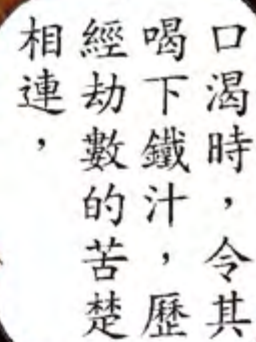 口渴時，令其
喝下鐵汁，歷
經劫數的苦楚
相連，